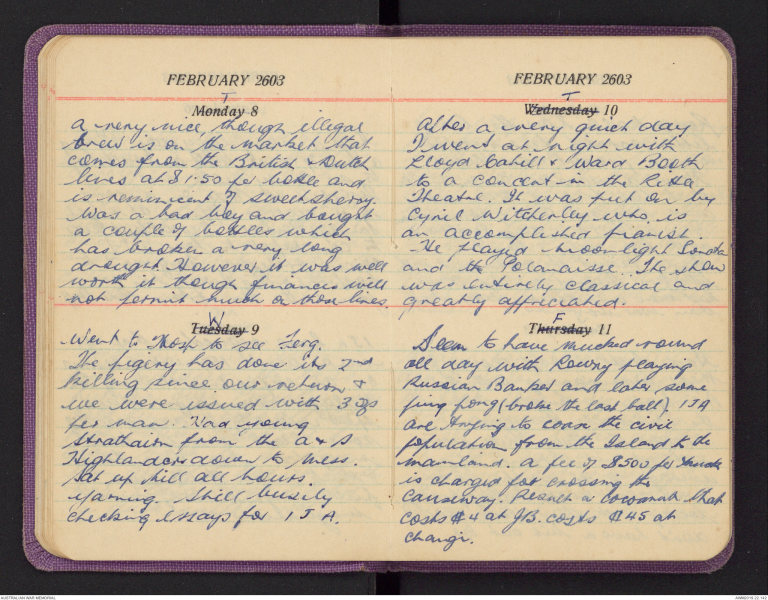 FEBRUARY 2603
T
Monday 8
A very nice, though illegal
brew is on the market that
comes from the British & Dutch
lines at $1.50 per bottle and
is reminicent of sweet sherry.
Was a bad boy and bought
a couple of bottles which
has broken a very long
drought. However it was well
worth it though finances will
not permit much on those lines.
W
Tuesday 9
Went to Hosp to see Ferg.
The pigery has done its 2nd
killing since our return &
we were issued with 3 ozs
per man. Had young
Strathairn from the A & S
Highlanders down to mess.
Sat up till all hours.
yarning. Still busily
checking essays for I J A.
FEBRUARY 2603
T
Wednesday 10
After a very quiet day
I went at night with
Lloyd Cahill & Ward Booth
to a concert in the Ritz
Theatre. It was put on by
Cyril Witcherley who is
an accomplished pianist.
He played Moonlight Sonata
and the Polanaisse. The show
was entirely classical and
greatly appriciated.
F
Thursday 11
Seem to have mucked round
all day with Rowry playing
Russian Banker and later some
ping pong (broke the last ball). I J A
are trying to coax the civic
population from the Island to the
mainland. A fee of $500 per truck
is charged for crossing the
Causeway. Result a cocoanut that
costs $4 at J.B. costs $45 at
Changi.
AUSTRALIAN WAR MEMORIAL